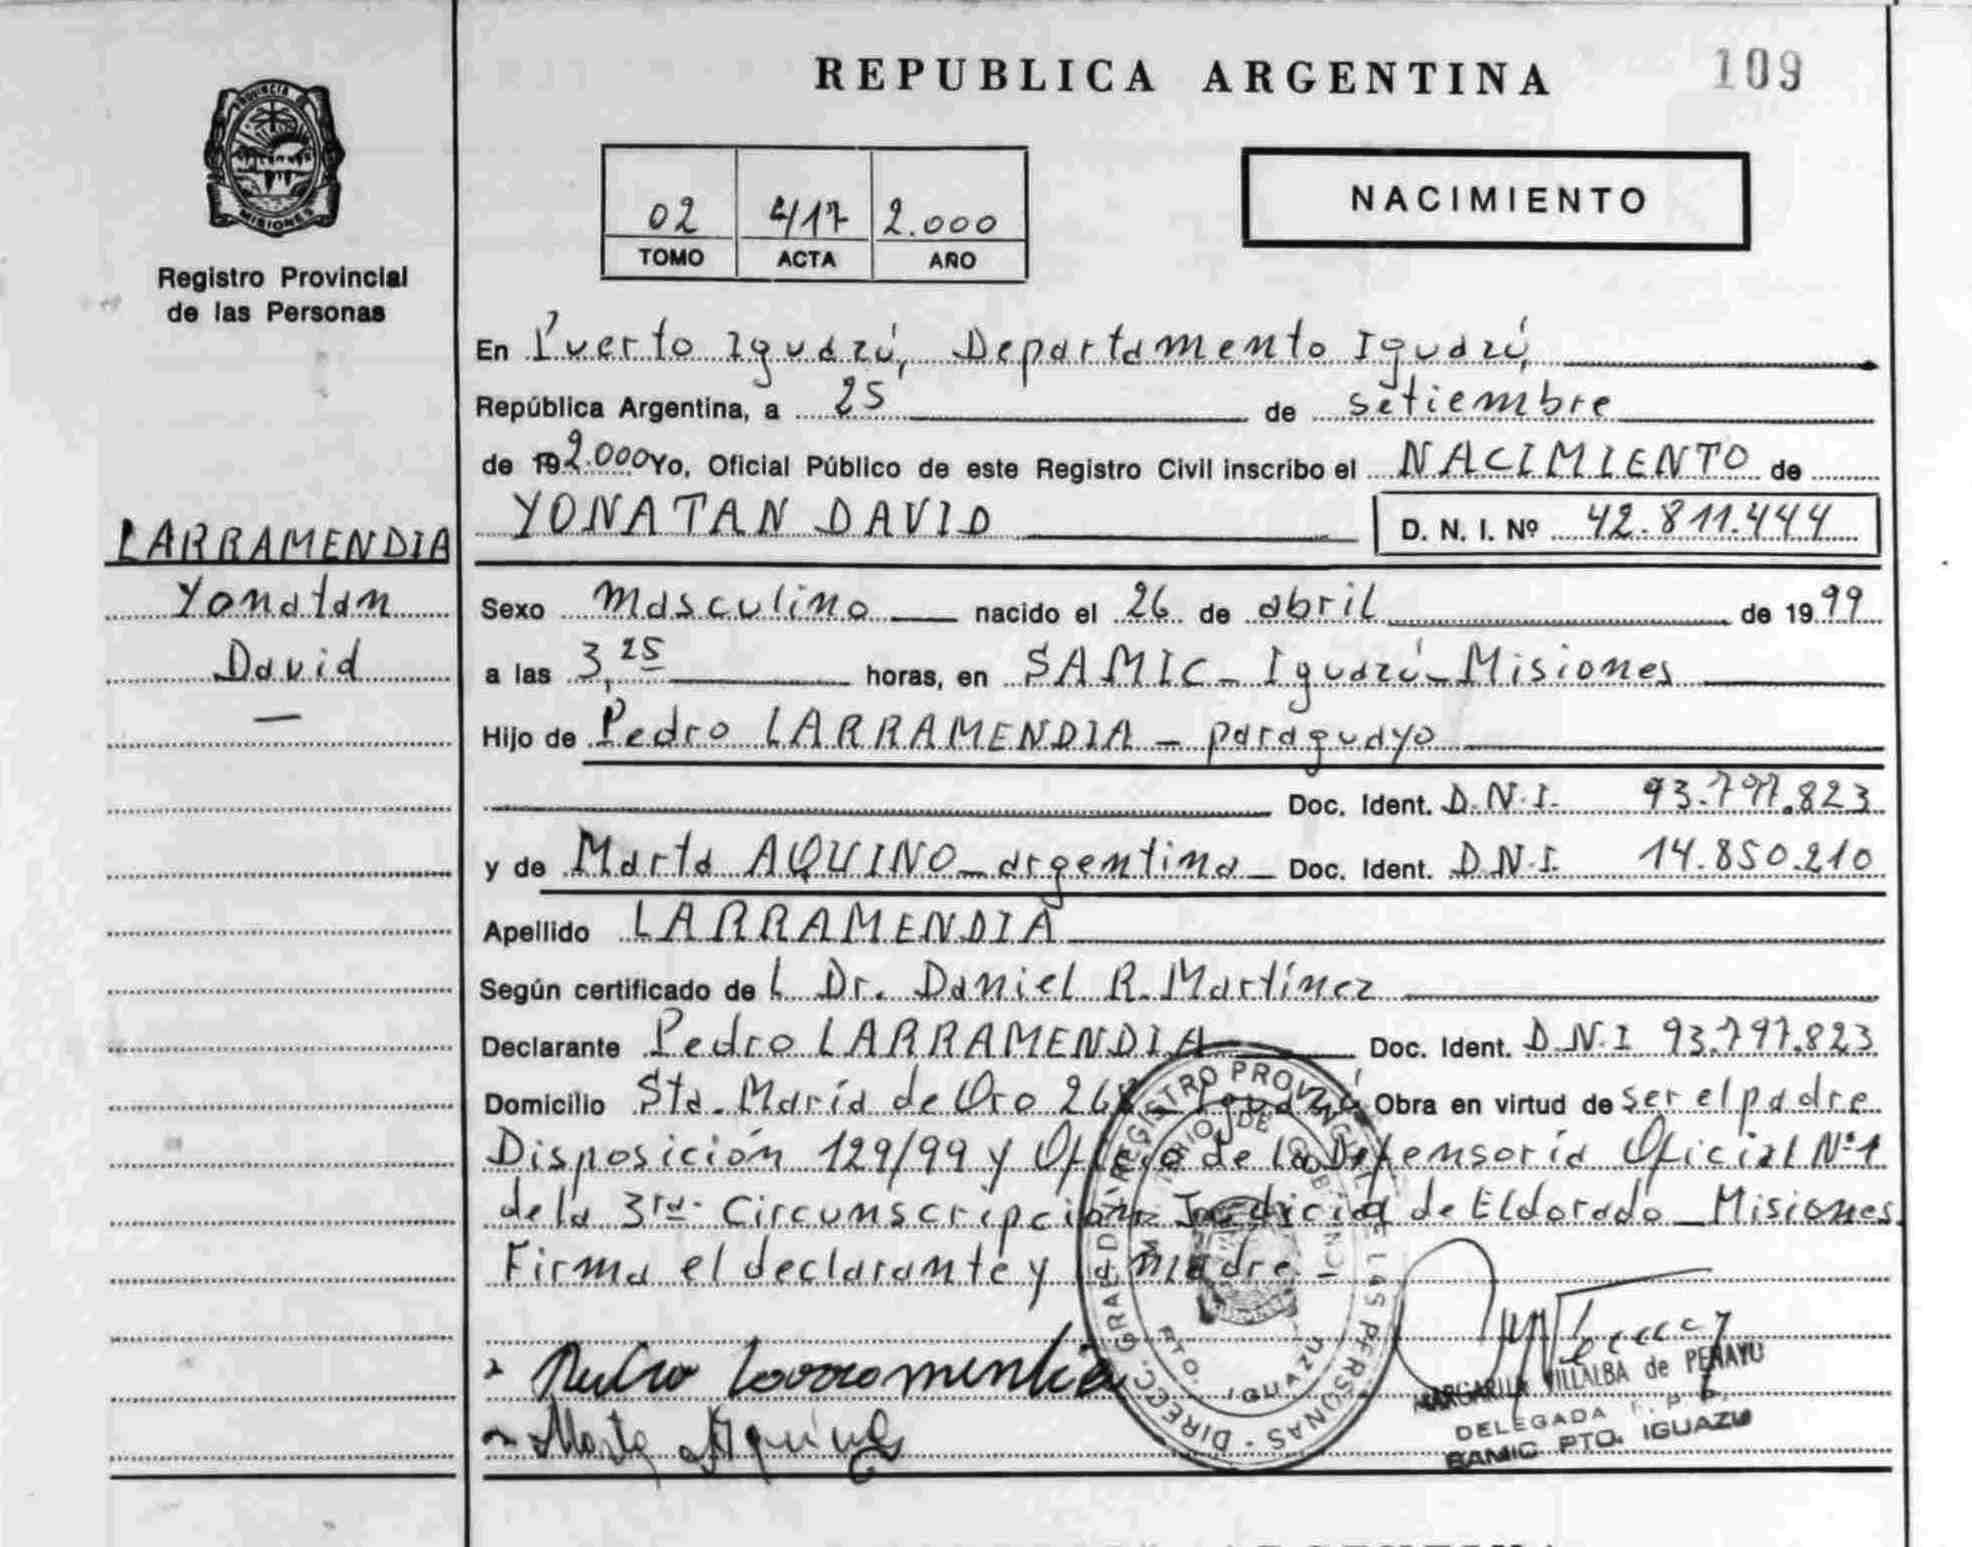 REPUBLICA ARGENTINA 109
PROVINCIA DE MISIONES
Registro Provincial
de las Personas
02 417 2.000
TOMO ACTA AÑO
NACIMIENTO
En Puerto Iguazú, Departamento Iguazú,
República Argentina, a 25 de setiembre
de 19 2.000 Yo, Oficial Público de este Registro Civil inscribo el NACIMIENTO de
YONATAN DAVID D. N. I. Nº 42.811.444
LARRAMENDIA
Yonatan
David
Sexo masculino nacido el 26 de abril de 1999
a las 3,25 horas, en SAMIC - Iguazú - Misiones
Hijo de Pedro LARRAMENDIA - paraguayo
Doc. Ident. D.N.I. 93.797.823
y de Marta AQUINO - argentina - Doc. Ident. D.N.I. 14.850.210
Apellido LARRAMENDIA
Según certificado de l Dr. Daniel R. Martínez
Declarante Pedro LARRAMENDIA Doc. Ident. D.N.I 93.797.823
Domicilio Sta. María de Oro - Iguazú Obra en virtud de ser el padre
Disposición 129/99 y Oficio de la Defensoría Oficial Nº 1
de la 3ra. Circunscripción Judicial de Eldorado - Misiones
Firma el declarante y la madre -
DIRECC. GRAL. DEL REGISTRO PROVINCIAL DE LAS PERSONAS
PTO. IGUAZU
Pedro Larramendia
Marta Aquino
MARGARITA VILLALBA de PENAYO
DELEGADA R. P. P.
SAMIC PTO. IGUAZU